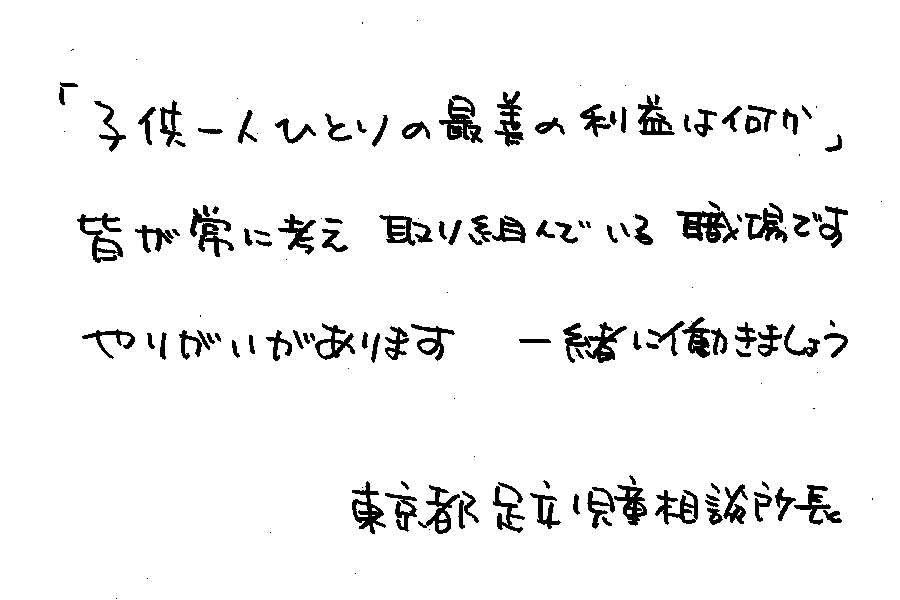 「子供一人ひとりの最善の利益は何か」
皆が常に考え 取り組んでいる 職場です
やりがいがあります 一緒に働きましょう
東京都足立児童相談所長